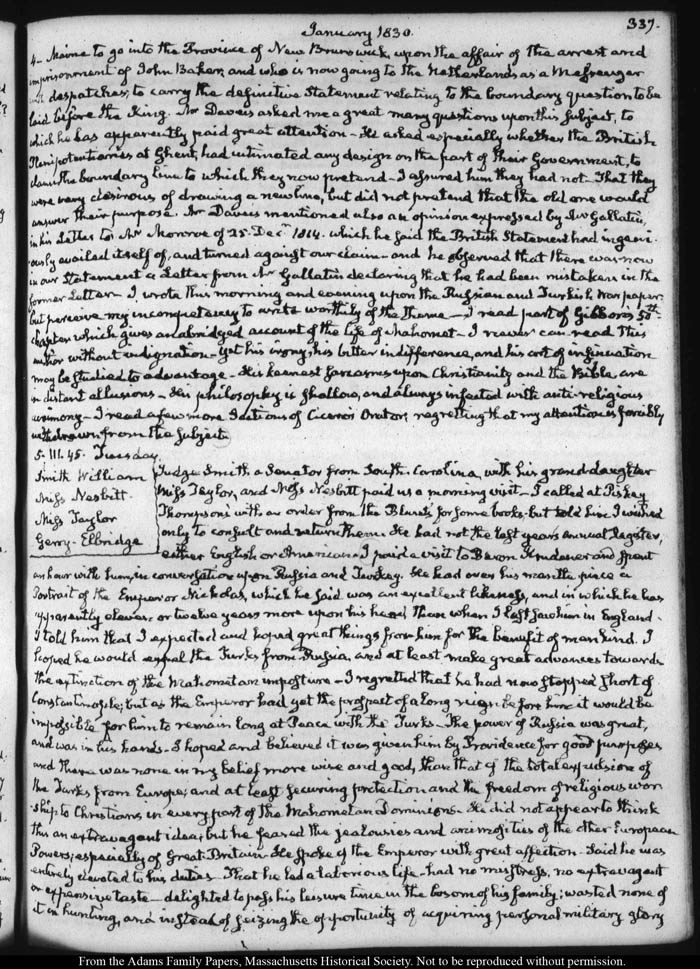 January 1830.
337.
4- Maine to go into the Province of New Brunswick, upon the affair of the arrest and
imprisonment of John Baker, and who is now going to the Netherlands as a Messenger
with despatches, to carry the definitive Statement relating to the boundary question to be
laid before the King. Mr Daveis asked me a great many questions upon this subject, to
which he has apparently paid great attention- He asked especially whether the British
Plenipotentiaries at Ghent, had intimated any design on the part of their Government, to
claim the boundary line to which they now pretend- I assured him they had not- That they
were very desirous of drawing a new line, but did not pretend that the old one would
answer their purpose. Mr Daveis mentioned also an opinion expressed by Mr Gallatin,
in his Letter to Mr Monroe of 25. Decr 1814. which he said the British Statement had ingeni-
ously availed itself of, and turned against our claim- and he observed that there was now
in our Statement a Letter from Mr Gallatin declaring that he had been mistaken in the
former Letter- I wrote this morning and evening upon the Russian and Turkish War paper;
but perceive my incompetency to write worthily of the Theme- I read part of Gibbon's 50th
chapter which gives an abridged account of the life of Mahomet- I never can read this
author without indignation- yet his irony, his bitter indifference, and his art of insinuation
may be studied to advantage- His keenest sarcasms upon Christianity and the Bible, are
in distant allusions- His philosophy is shallow, and always infected with anti-religious
acrimony- I read a few more Sections of Cicero's Orator, regretting that my attention is forcibly
withdrawn from the subject.
5. III. 45. Tuesday.
Smith William
Miss Nesbitt.
Miss Taylor
Gerry- Elbridge
Judge Smith, a Senator from South-Carolina, with his grand-daughter
Miss Taylor, and Miss Nesbitt paid us a morning visit- I called at Pishey
Thompson's with an order from the for some books- but told him I wished
only to consult and return them. He had not the last years annual Register,
either English or American- I paid a visit to Baron Krudener and spent
an hour with him, in conversation upon Russia and Turkey. He had over his mantle piece a
Portrait of the Emperor Nicholas, which he said was an excellent likeness, and in which he has
apparently eleven or twelve years more upon his head than when I last saw him in England-
I told him that I expected and hoped great things from him for the benefit of mankind. I
hoped he would expel the Turks from Russia, and at least make great advances towards
the extinction of the Mahometan imposture- I regretted that he had now stopped short of
Constantinople; but as the Emperor had yet the prospect of a long reign before him it would be
impossible for him to remain long at Peace with the Turks- The power of Russia was great,
and was in his hands- I hoped and believed it was given him by Providence for good purposes
and there was none in my belief more wise and good, than that of the total expulsion of
the Turks from Europe; and at least securing protection and the freedom of religious wor-
ship to Christians in every part of the Mahometan Dominions- He did not appear to think
this an extravagant idea; but he feared the jealousies and animosities of the other European
Powers, especially of Great-Britain- He spoke of the Emperor with great affection- Said he was
entirely devoted to his duties- That he led a laborious life- had no mistress, no extravagant
or expensive taste- delighted to pass his leisure time in the bosom of his family; wasted none of
it in hunting, and instead of seizing the opportunity of acquiring personal military glory
From the Adams Family Papers, Massachusetts Historical Society. Not to be reproduced without permission.